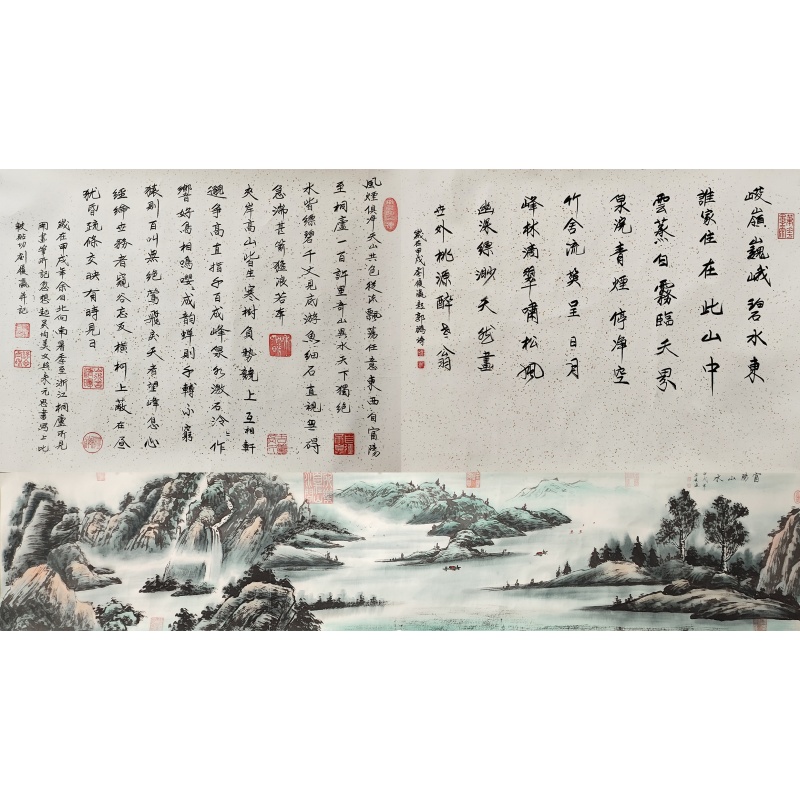 峻嶺巍峨碧水東
誰家住在此山中
雲蒸白霧臨天界
泉浣青煙停淨空
竹舍流英呈日月
峰林滴翠嘯松風
幽深縹渺天然畫
世外桃源醉老翁
歲在甲戌劉復瀛題郭鵬詩
風煙俱淨天山共色從流飄蕩任意東西自富陽
至桐廬一百許里奇山異水天下獨絕
水皆縹碧千丈見底游魚細石直視無礙
急湍甚箭猛浪若奔
夾岸高山皆生寒樹負勢競上互相軒
邈爭高直指千百成峰泉水激石泠泠作
響好鳥相鳴嚶嚶成韻蟬則千轉不窮
猿則百叫無絕鳶飛戾天者望峰息心
經綸世務者窺谷忘反橫柯上蔽在晝
猶昏疏條交映有時見日
歲在甲戌年余自北向南暑季至浙江桐廬所見
用畫筆所記忽想起吳均美文與朱元思書寫上此
劉復瀛并記
富陽山水